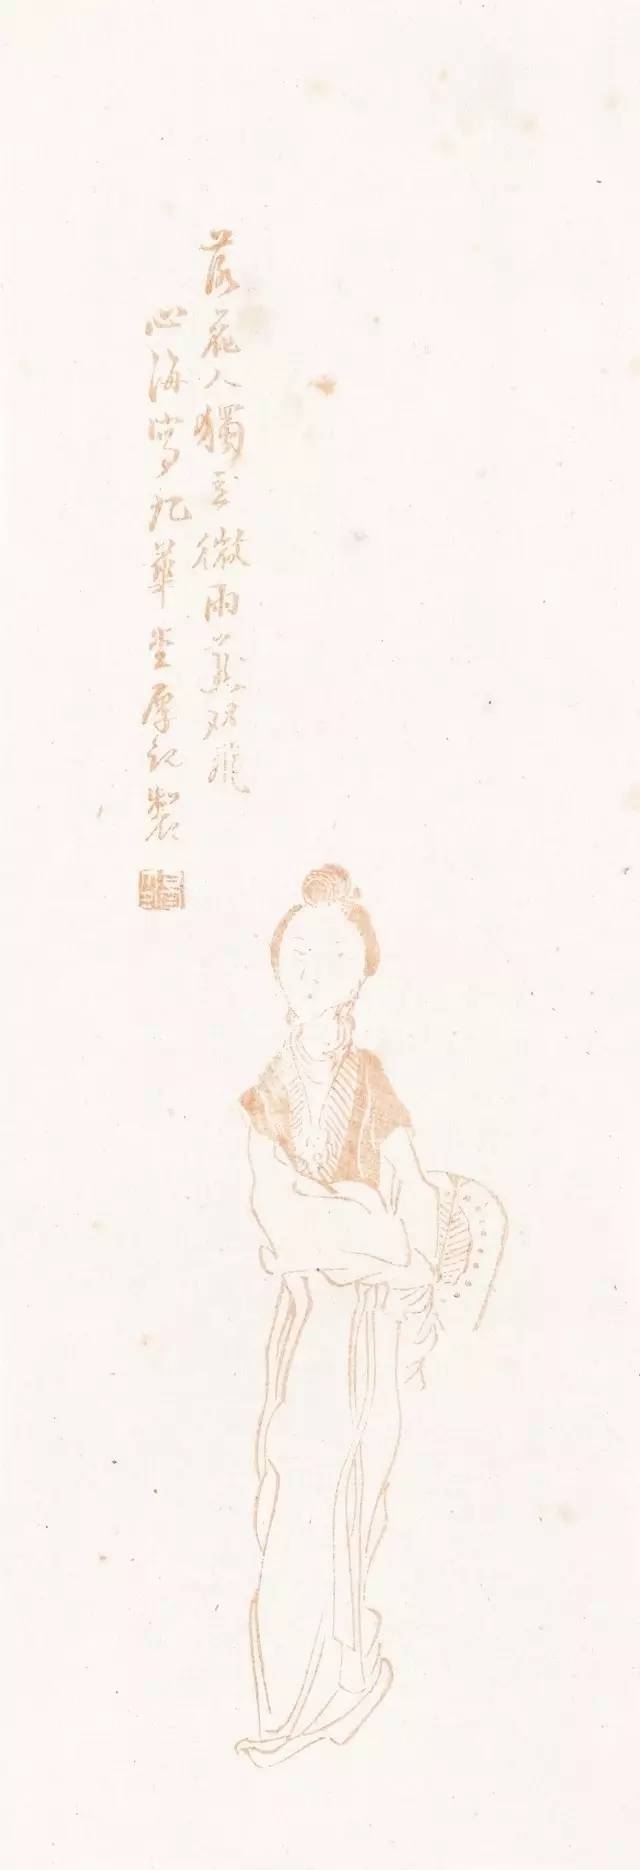 落花人獨立微雨燕双飛
心海寫九華堂厚記製